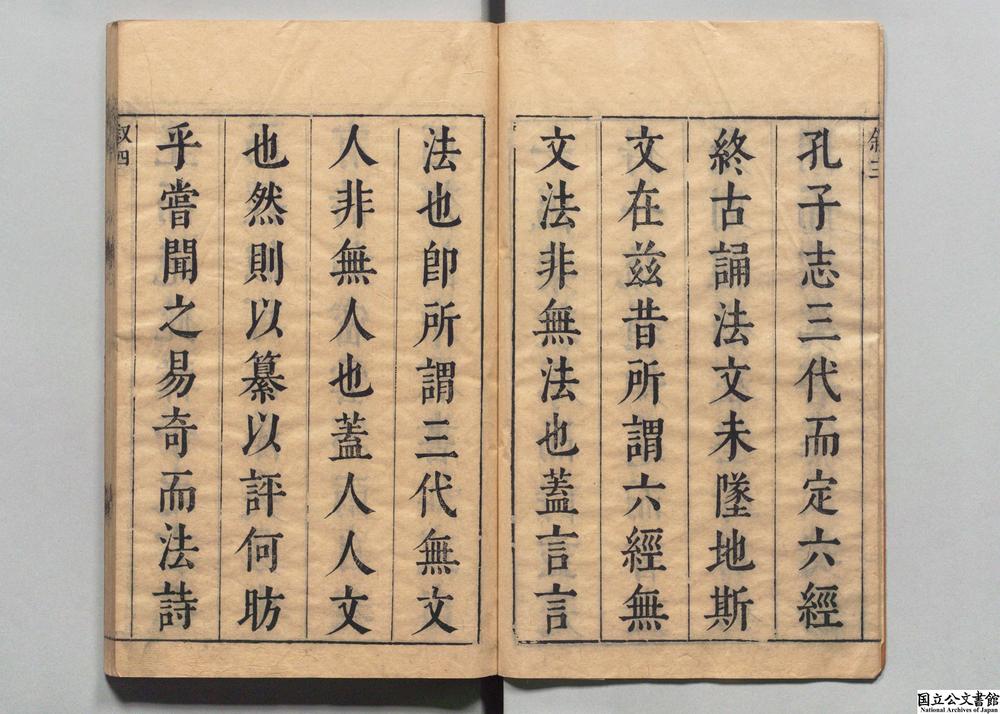 敘三
孔子志三代而定六經
終古誦法文未墜地斯
文在兹昔所謂六經無
文法非無法也蓋言言
法也卽所謂三代無文
人非無人也蓋人人文
也然則以纂以評何昉
乎嘗聞之易奇而法詩
叙四
国立公文書館
National Archives of Japan